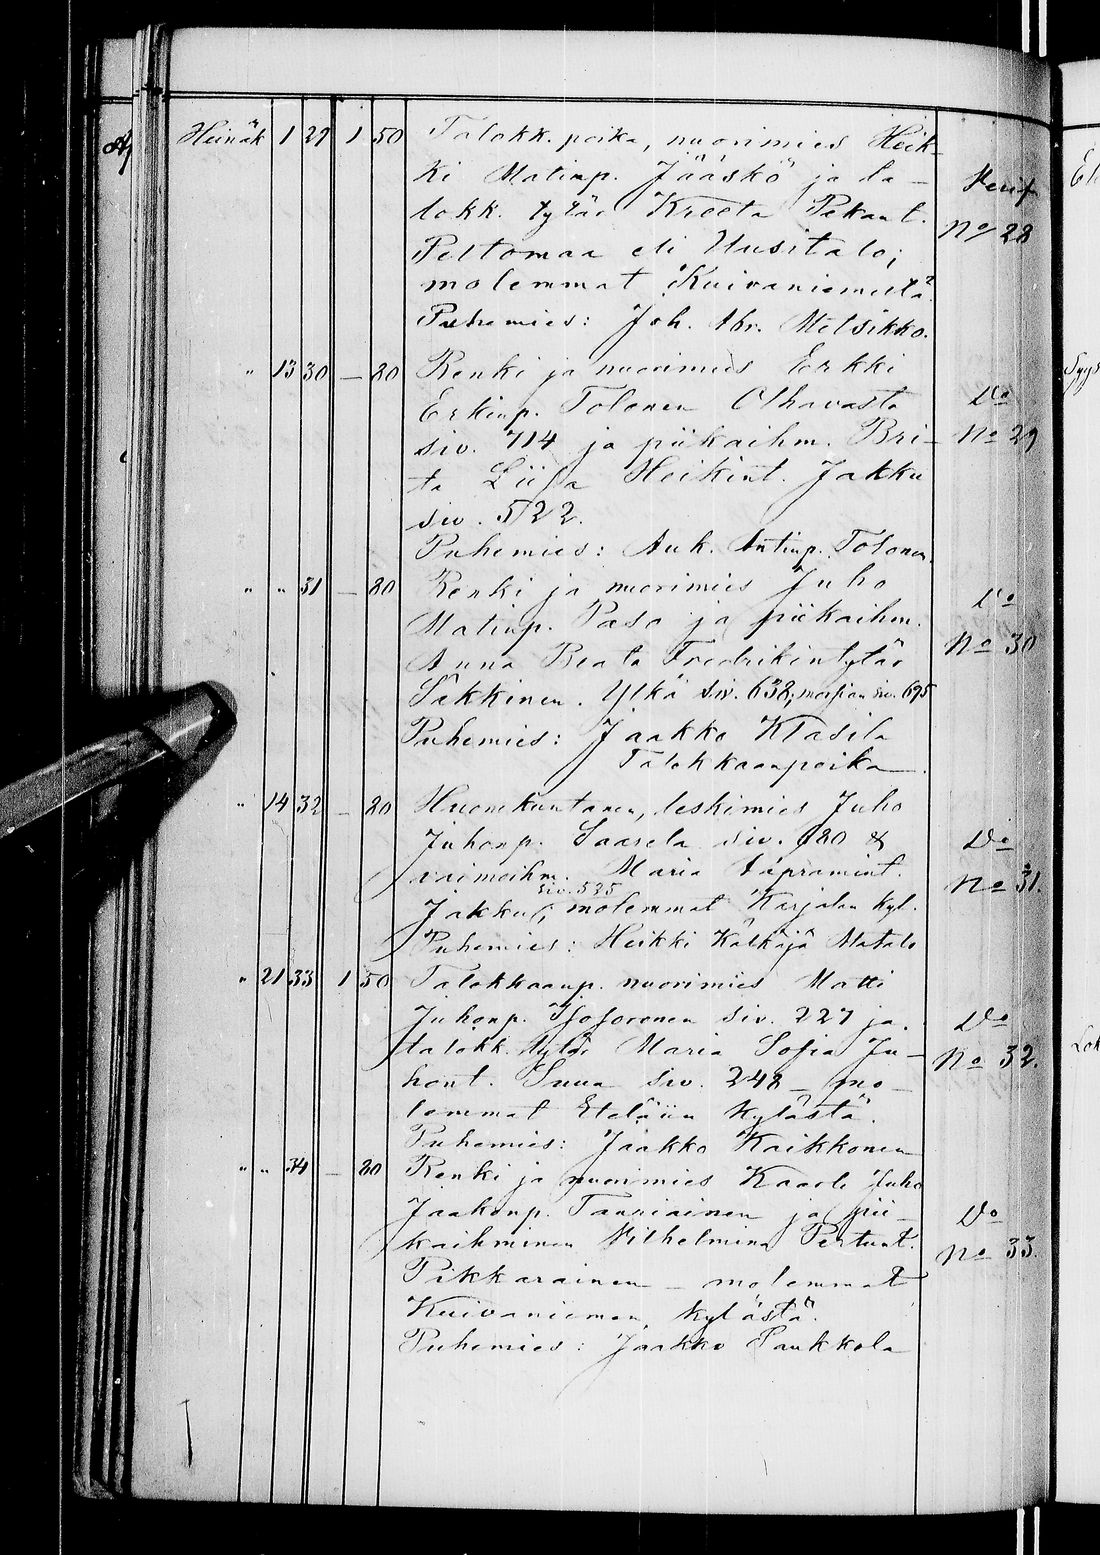 Heinäk 1 29 1 50 Talokk. poika, nuorimies Heik-
ki Matinp. Jääskö ja ta- Verif
lokk. tytär Kreeta Pekant. No 28
Peltomaa eli Uusitalo;
molemmat Kuivaniemeltä.
Puhemies: Joh. Abr. Metsikko.
" 13 30 — 80 Renki ja nuorimies Erkki
Erkinp. Tolonen Olhavasta Do
siv. 714 ja piikaihm. Bri- No 29
ta Liisa Heikint. Jakku
siv. 522.
Puhemies: Auk. Antinp. Tolonen.
" " 31 — 80 Renki ja nuorimies Juho Do
Matinp. Paso ja piikaihm.
Anna Beata Fredrikintytär No 30
Säkkinen. Ylkä siv. 638, morsian siv. 695
Puhemies: Jaakko Klasila
Talokkaanpoika
" 14 32 — 80 Huonekuntanen, leskimies Juho
Juhonp. Saarela siv. 180 & Do
vaimoihm. Maria Apramint. No 31.
siv. 535
Jakku; molemmat Karjalan kyl.
Puhemies: Heikki Kälkäjä Matala
" 21 33 1 50 Talokkaanp. nuorimies Matti
Juhonp. Isosoronen siv. 227 ja Do
talokk. tytär Maria Sofia Ju- No 32.
hont. Snua siv. 248 — mo-
lemmat Etelään kylästä.
Puhemies: Jaakko Kaikkonen
" " 34 — 80 Renki ja nuorimies Kaarle Juho
Jaakonp. Tauriainen ja pii- Do
kaihminen Vilhelmina Pertunt. No 33.
Pikkarainen — molemmat
Kuivaniemen kylästä.
Puhemies: Jaakko Paukkola